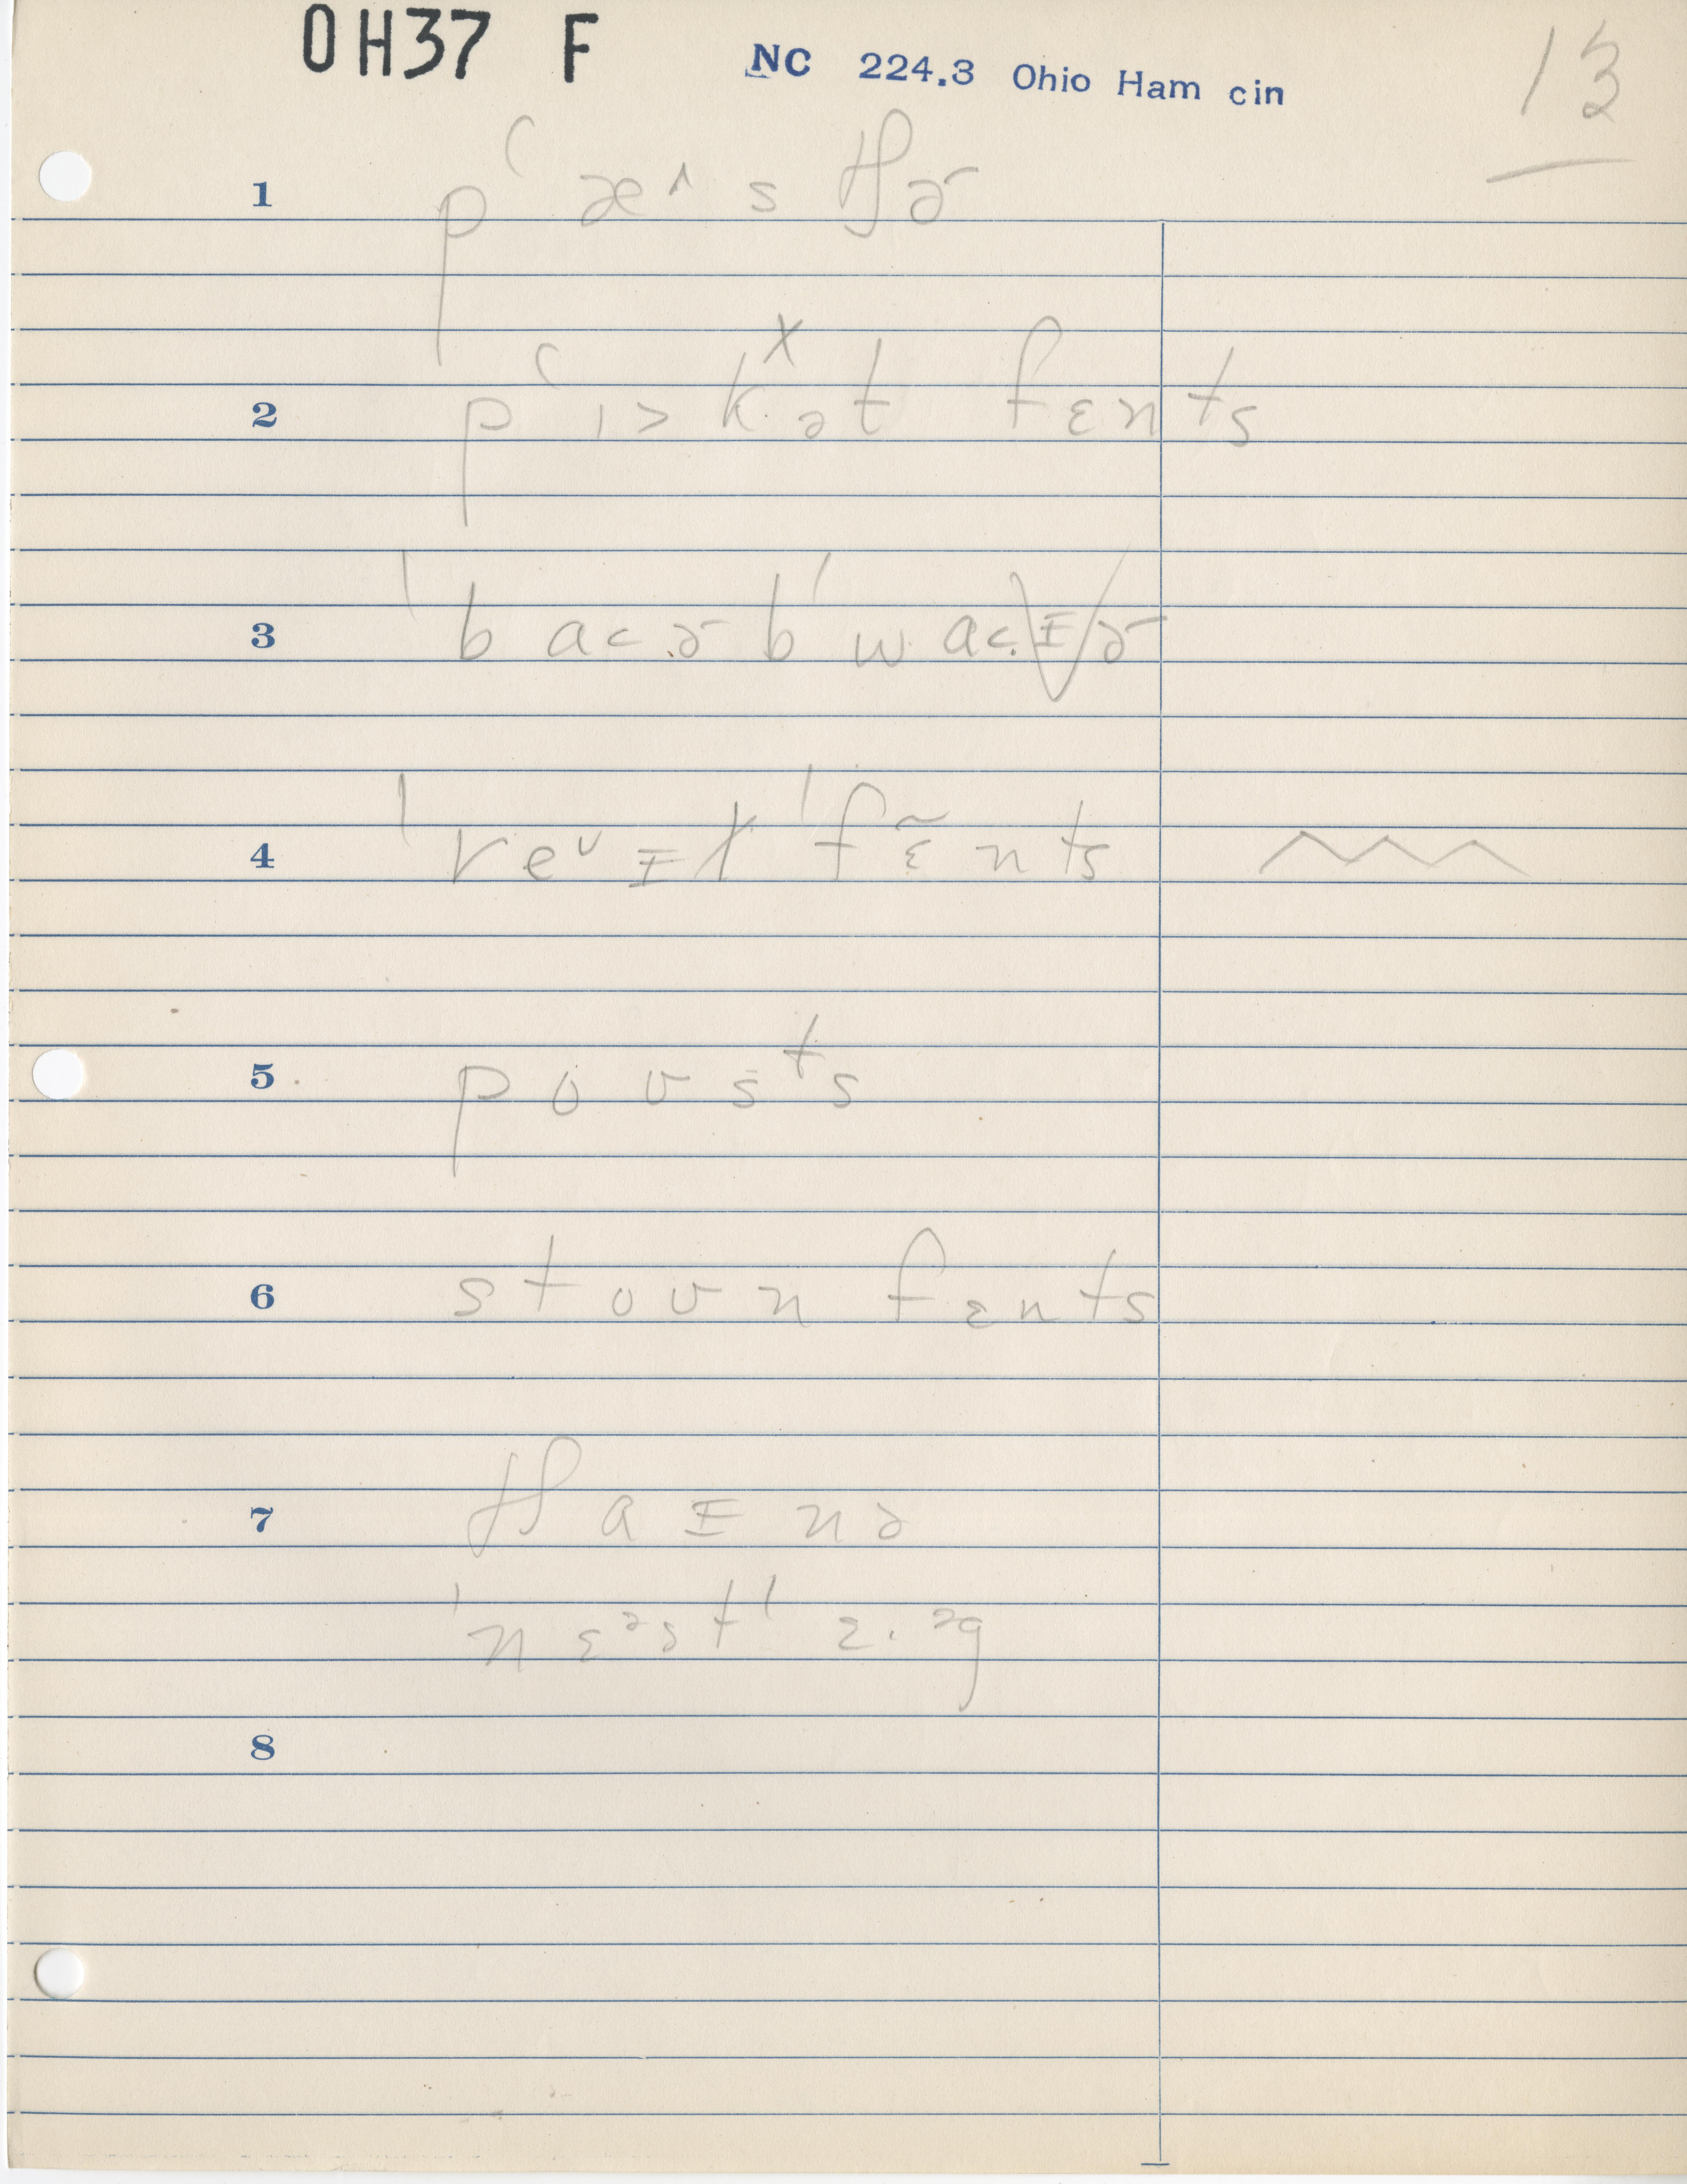 OH37 F NC 224.3 Ohio Ham cin 13
1 pʻ æ^ s tʃɚ
2 pʻ ɪ > kˣ ə t f ɛ n t s
3 ˈb ɑ< ɚ b ˈw ɑ< ɪ ɚ
4 ˈr eᵛ ɪ ɫ ˈf ɛ̃ n ts
5 p o ʊ s ᵗ s
6 s t o ʊ n f ɛ n t s
7 tʃ a ɪ n ə
ˈn ɛ ᵊ s t ˈ ɛ · ᵊg
8